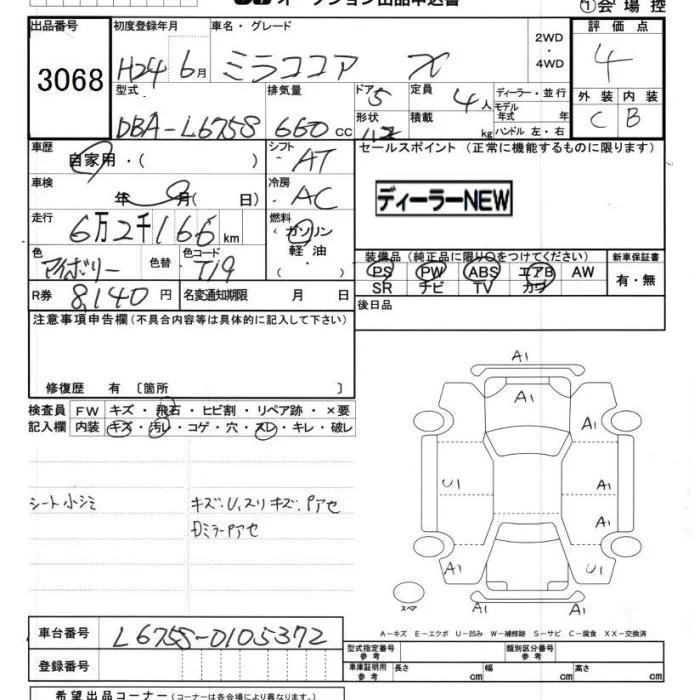 オークション出品申込書
①会場控
出品番号 初度登録年月 車名・グレード 評価点
3068 H24 6月 ミラココア X 2WD・4WD 4
型式 排気量 ドア 5 定員 4人 ディーラー・並行 外装 内装
DBA-L675S 660cc 形状 積載 kg モデル年式 年 C B
ハンドル 左・右
車歴 シフト セールスポイント (正常に機能するものに限ります)
自家用・( ) AT
車検 冷房
年 月( 日) AC ディーラーNEW
走行 燃料
6万2千166km ガソリン
軽油
( )
色 色替 色コード 装備品(純正品に限り○をつけてください) 新車保証書
アイボリー T19 PS PW ABS エアB AW 有・無
SR ナビ TV カワ
R券 8,140円 名変通知期限 月 日 後日品
注意事項申告欄(不具合内容等は具体的に記入して下さい)
修復歴 有〔箇所 〕
検査員 FW キズ・飛石・ヒビ割・リペア跡・×要
記入欄 内装 キズ・汚レ・コゲ・穴・スレ・キレ・破レ
シート小シミ キズ.U.スリキズ.Pアセ
DミラーPアセ
A1
A1
A1
U1 A1
A1
A1 A1
A1
スペア
A-キズ E-エクボ U-凹み W-補修跡 S-サビ C-腐食 XX-交換済
車台番号 L675S-0105372
型式指定番号 参考 類別区分番号 参考
登録番号 車庫証明用 参考 長さ cm 幅 cm 高さ cm
希望出品コーナー(コーナーは各会場により異なります。)